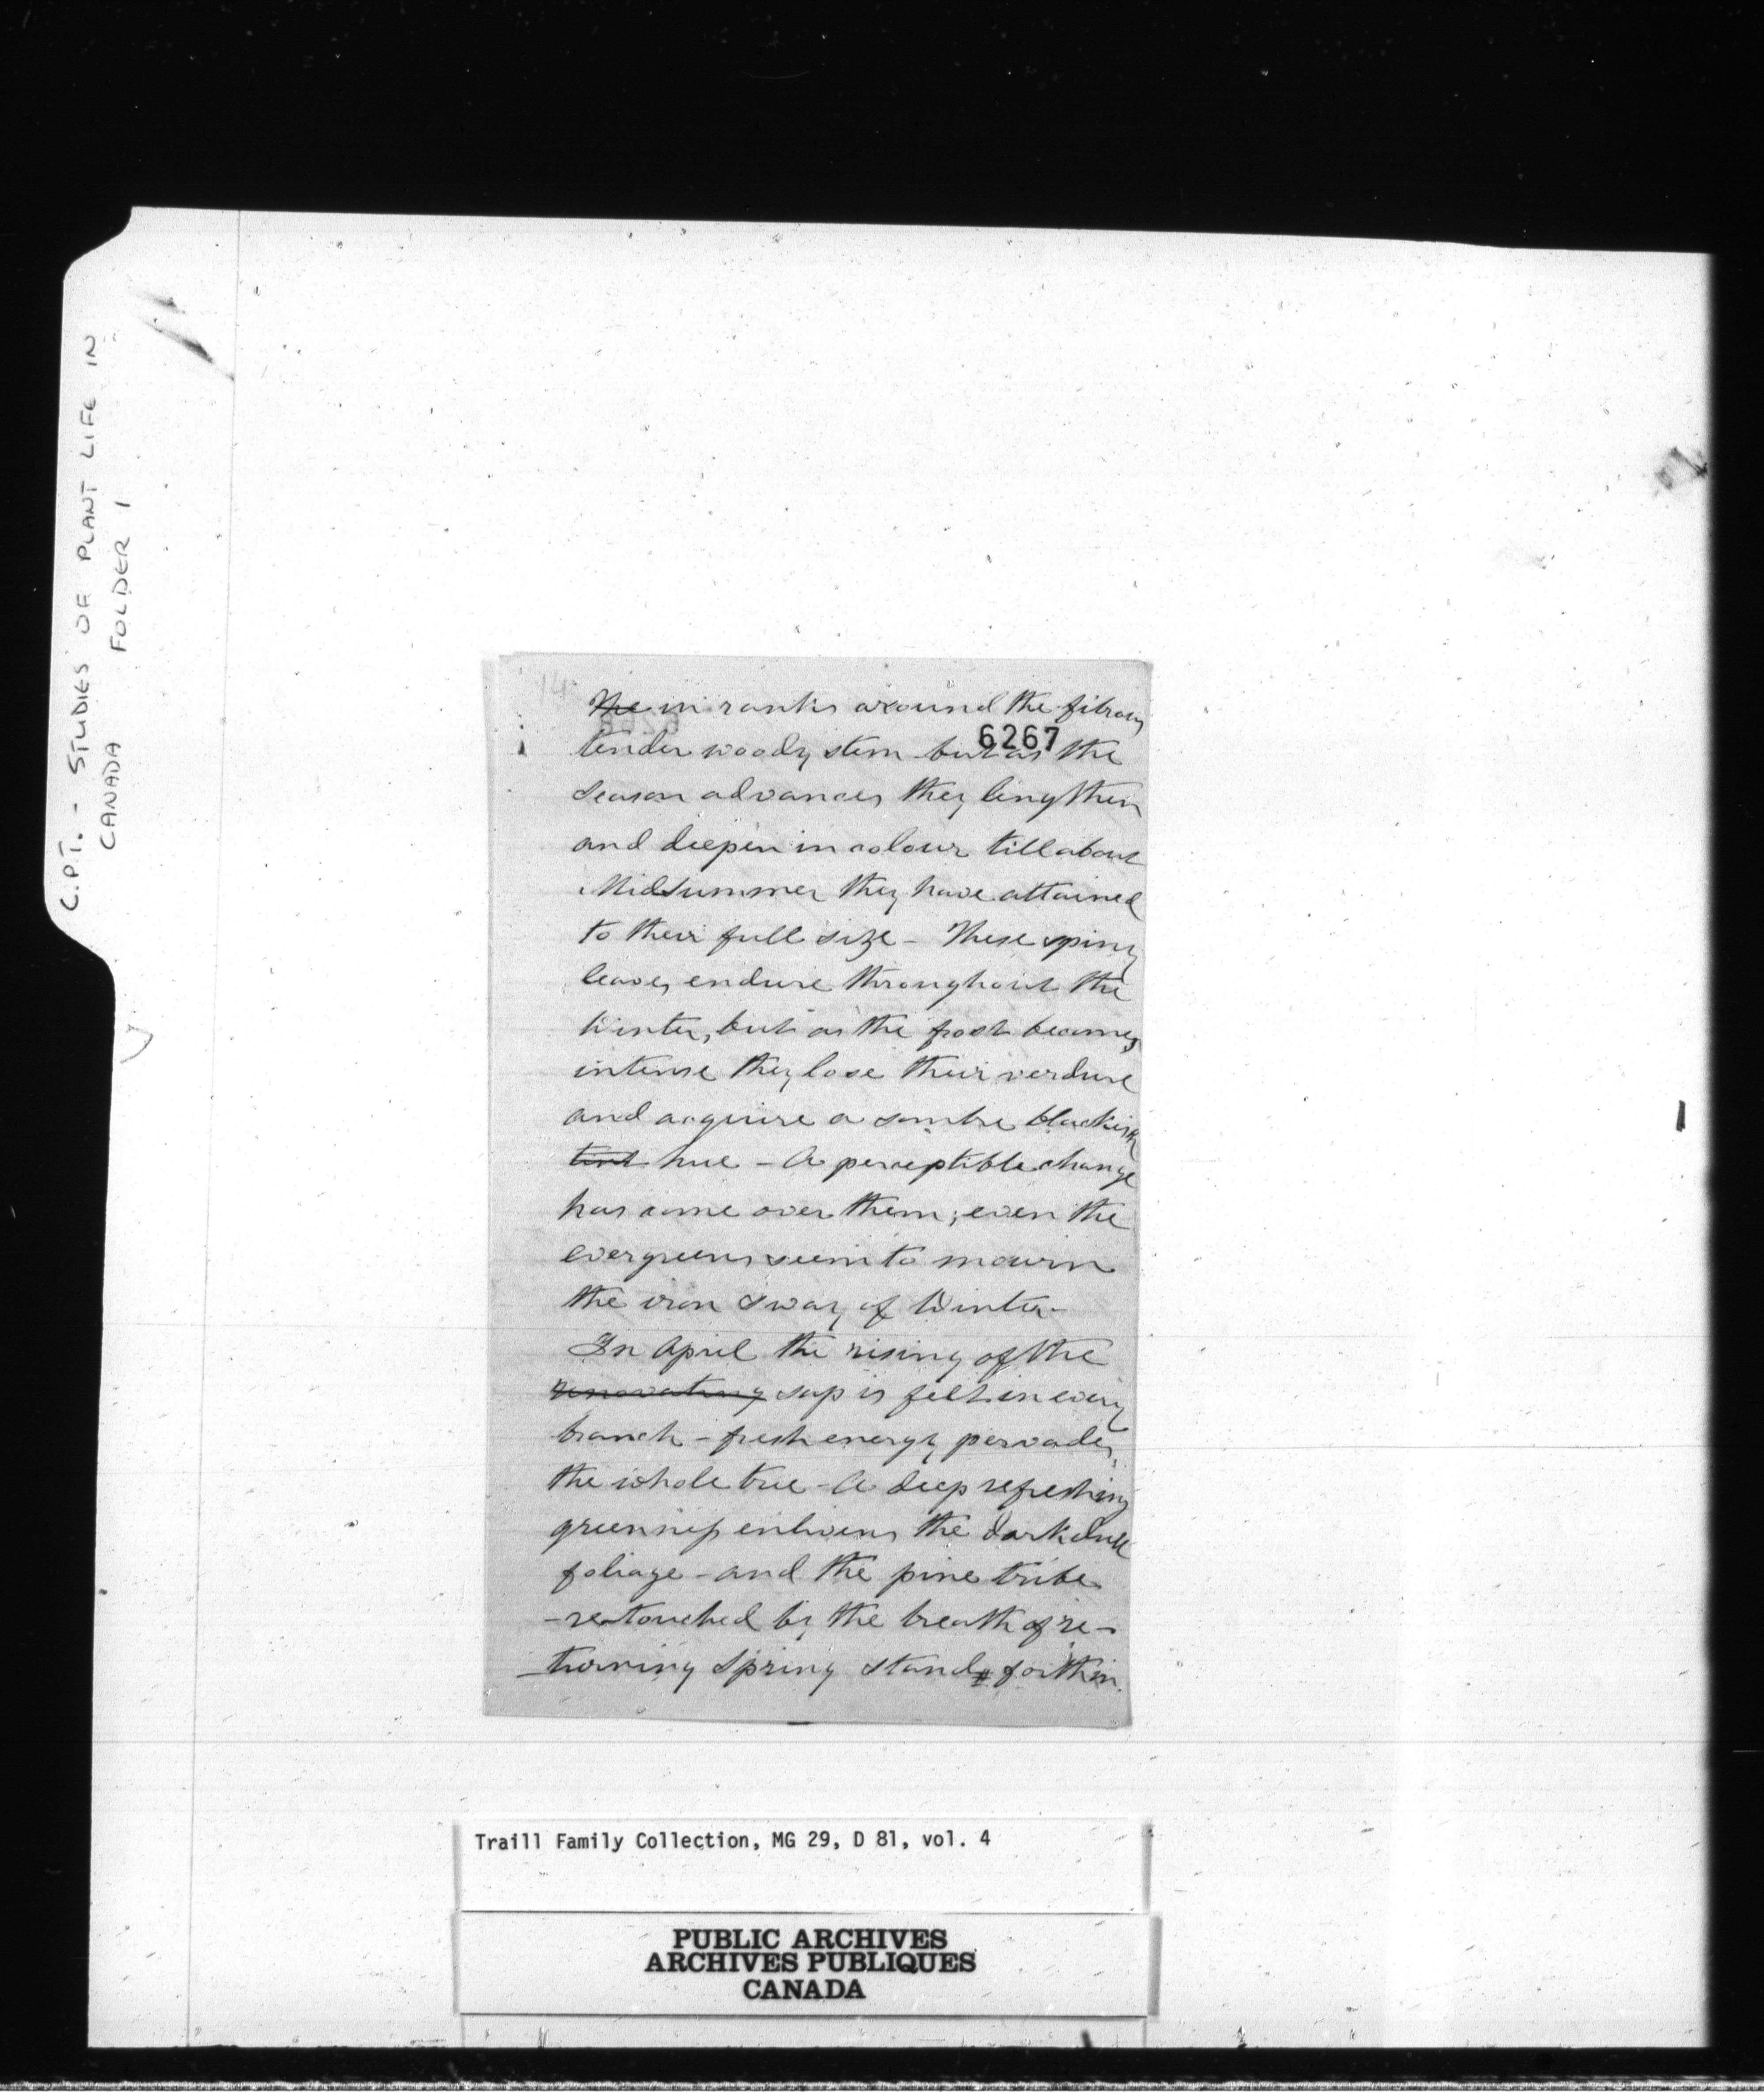 C.P.T. - STUDIES OF PLANT LIFE IN
CANADA FOLDER 1
14
The in ranks around the fibrous
6267
tender woody stem but as the
season advances they lengthen
and deepen in colour till about
Midsummer they have attained
to their full size - These spiny
leaves endure throughout the
Winter, but as the frost becomes
intense they lose their verdure
and acquire a sombre blackish
tint hue - A perceptible change
has come over them; even the
evergreens seem to mourn
the iron sway of Winter -
In April the rising of the
renovating sap is felt in every
branch - fresh energy pervades
the whole tree - A deep refreshing
greenness enlivens the dark dull
foliage - and the pine tribe
- retouched by the breath of re-
turning Spring stands forth in
Traill Family Collection, MG 29, D 81, vol. 4
PUBLIC ARCHIVES
ARCHIVES PUBLIQUES
CANADA